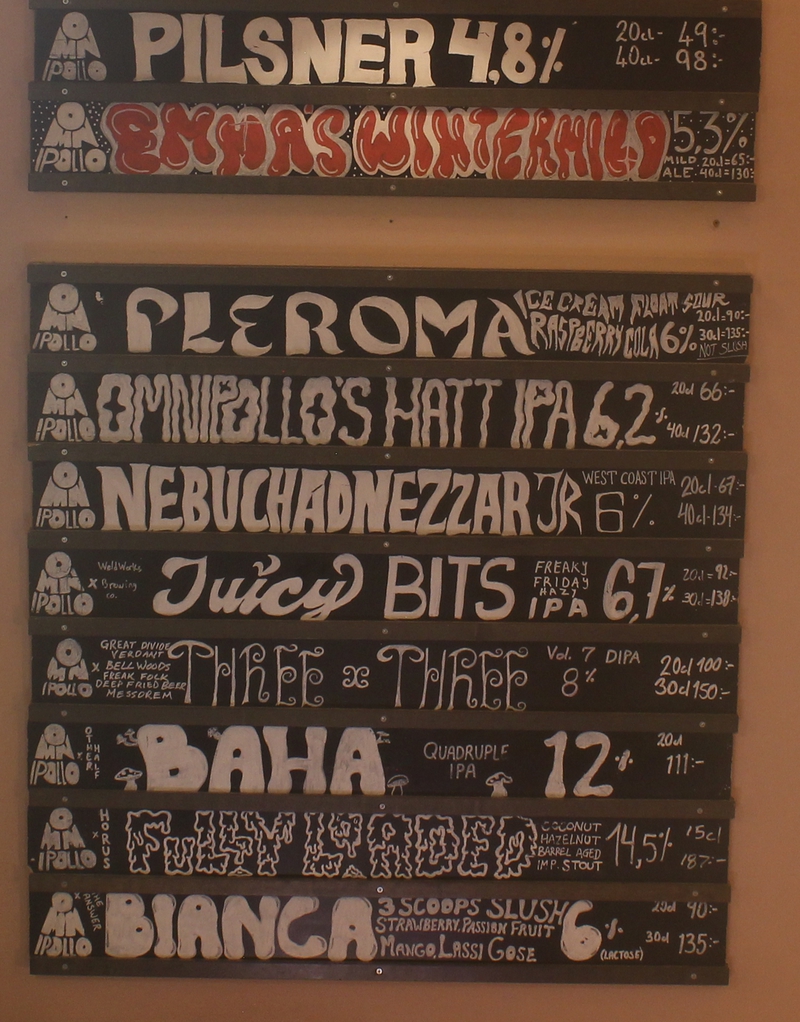 OMNIPOLLO
PILSNER 4,8%
20cl- 49:-
40cl- 98:-
OMNIPOLLO
EMMA'S WINTERMILD
5,3%
MILD. 20cl=65:-
ALE. 40cl=130:-
OMNIPOLLO
PLEROMA
ICE CREAM FLOAT SOUR
RASPBERRY COLA 6%
20cl=90:-
30cl=135:-
NOT SLUSH
OMNIPOLLO
OMNIPOLLO'S HATT IPA 6,2%
20cl 66:-
40cl 132:-
OMNIPOLLO
NEBUCHADNEZZAR JR
WEST COAST IPA
6%
20cl-67:-
40cl-134:-
OMNIPOLLO
x WeldWerks
Brewing
co.
Juicy BITS
FREAKY
FRIDAY
HAZY
IPA
6,7%
20cl=92:-
30cl=138:-
OMNIPOLLO
x GREAT DIVIDE
VERDANT
BELLWOODS
FREAK FOLK
DEEP FRIED BEER
MESSOREM
THREE x THREE
Vol. 7 DIPA
8%
20cl 100:-
30cl 150:-
OMNIPOLLO
x OTHER
HALF
BAHA
QUADRUPLE
IPA
12%
20cl
111:-
OMNIPOLLO
x HORUS
FULLY LOADED
COCONUT
HAZELNUT
BARREL AGED
IMP. STOUT
14,5%
15cl
187:-
OMNIPOLLO
x THE
ANSWER
BIANCA
3 SCOOPS SLUSH
STRAWBERRY, PASSION FRUIT
MANGO, LASSI GOSE
6%
(LACTOSE)
20cl 90:-
30cl 135:-